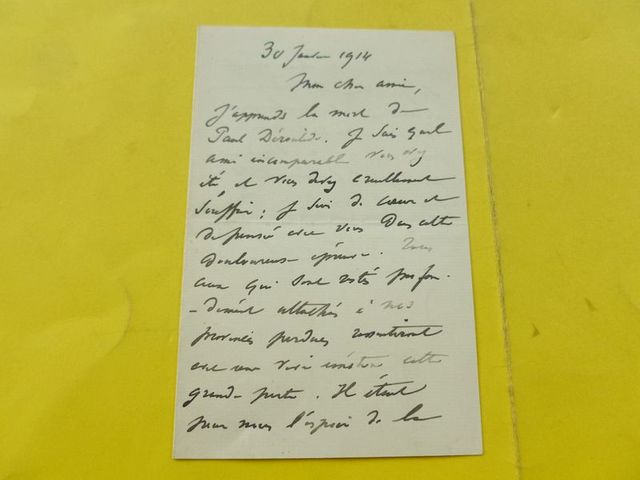 30 Janvier 1914
Mon cher ami,
J'apprends la mort de
Paul Déroulède. Je sais quel
ami incomparable vous avez
été, et vous devez cruellement
souffrir ; Je suis de cœur et
de pensée avec vous dans cette
douloureuse épreuve. Tous
ceux qui sont restés profon-
-dément attachés à nos
provinces perdues ressentiront
avec une vive émotion cette
grande perte. Il était
pour nous l'espoir de la